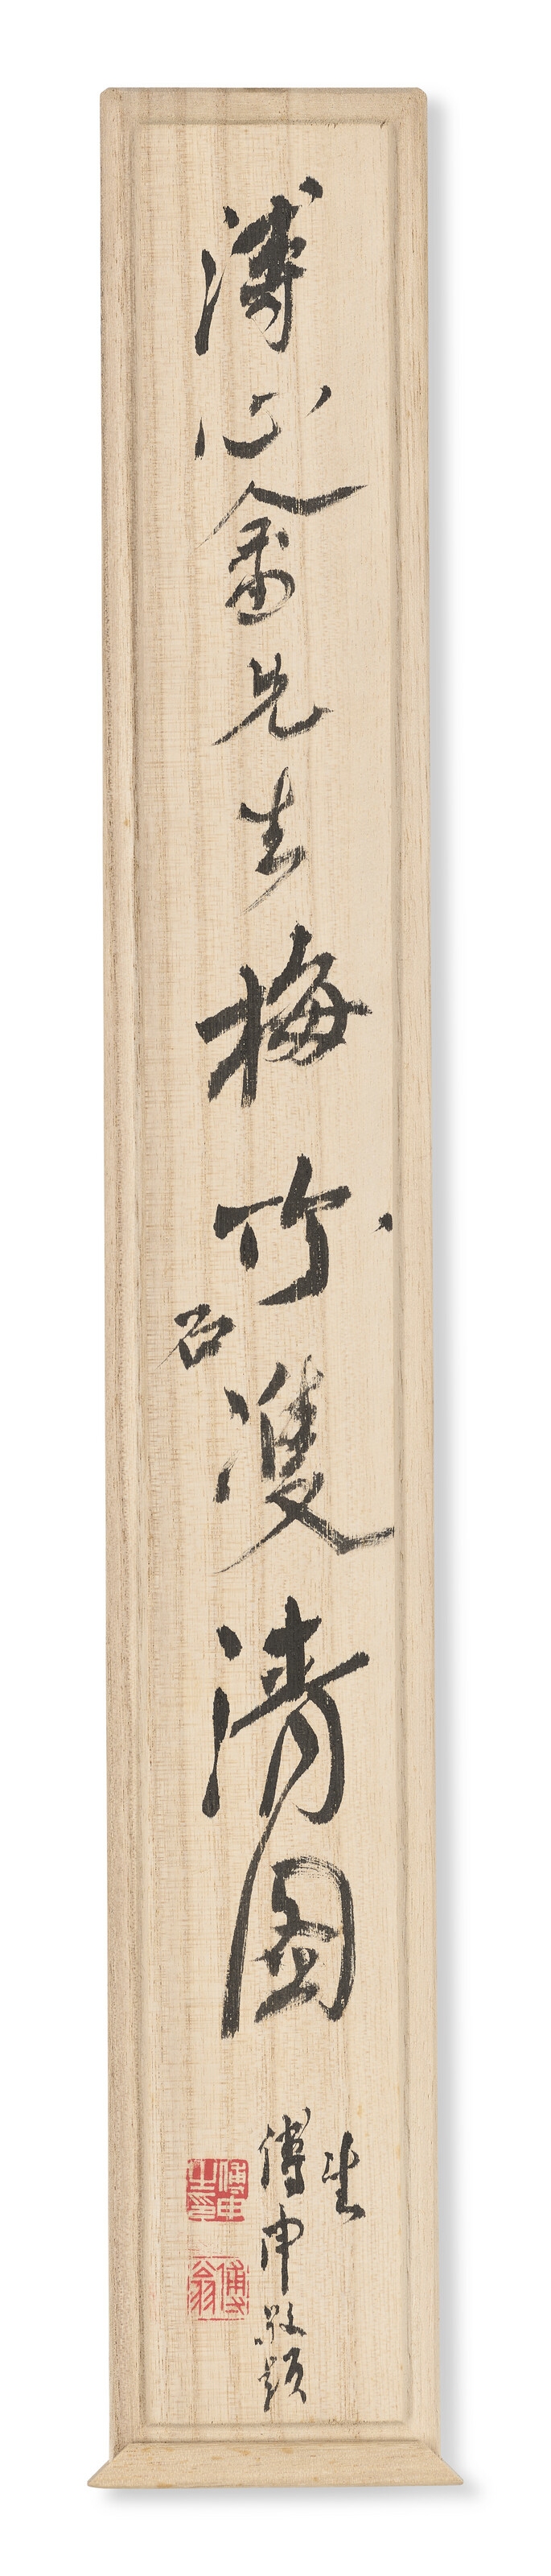 溥心畬先生梅竹石雙清圖
生
傅申敬題
傅申之印